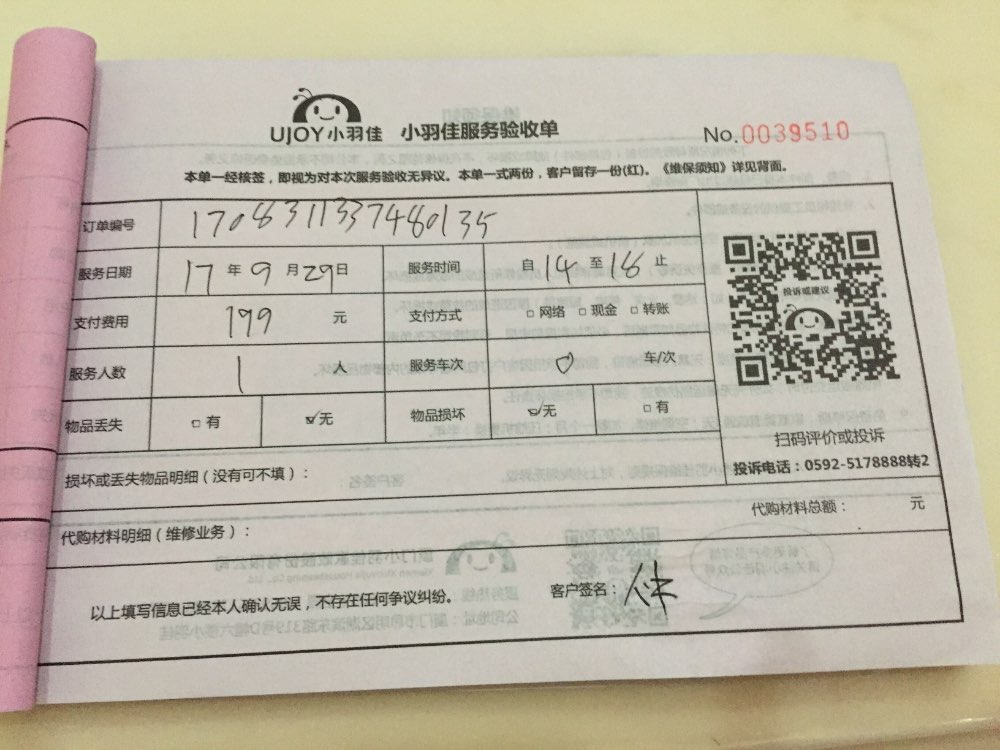 UJOY小羽佳 小羽佳服务验收单 No.0039510
本单一经核签，即视为对本次服务验收无异议。本单一式两份，客户留存一份(红)。《维保须知》详见背面。
订单编号 1708311337480135
服务日期 17年9月29日 服务时间 自14至18止
支付费用 199元 支付方式 □网络 □现金 □转账
服务人数 1人 服务车次 0车/次
物品丢失 □有 ☑无 物品损坏 ☑无 □有
投诉或建议
扫码评价或投诉
投诉电话：0592-5178888转2
损坏或丢失物品明细（没有可不填）：
代购材料明细（维修业务）： 代购材料总额： 元
以上填写信息已经本人确认无误，不存在任何争议纠纷。 客户签名：